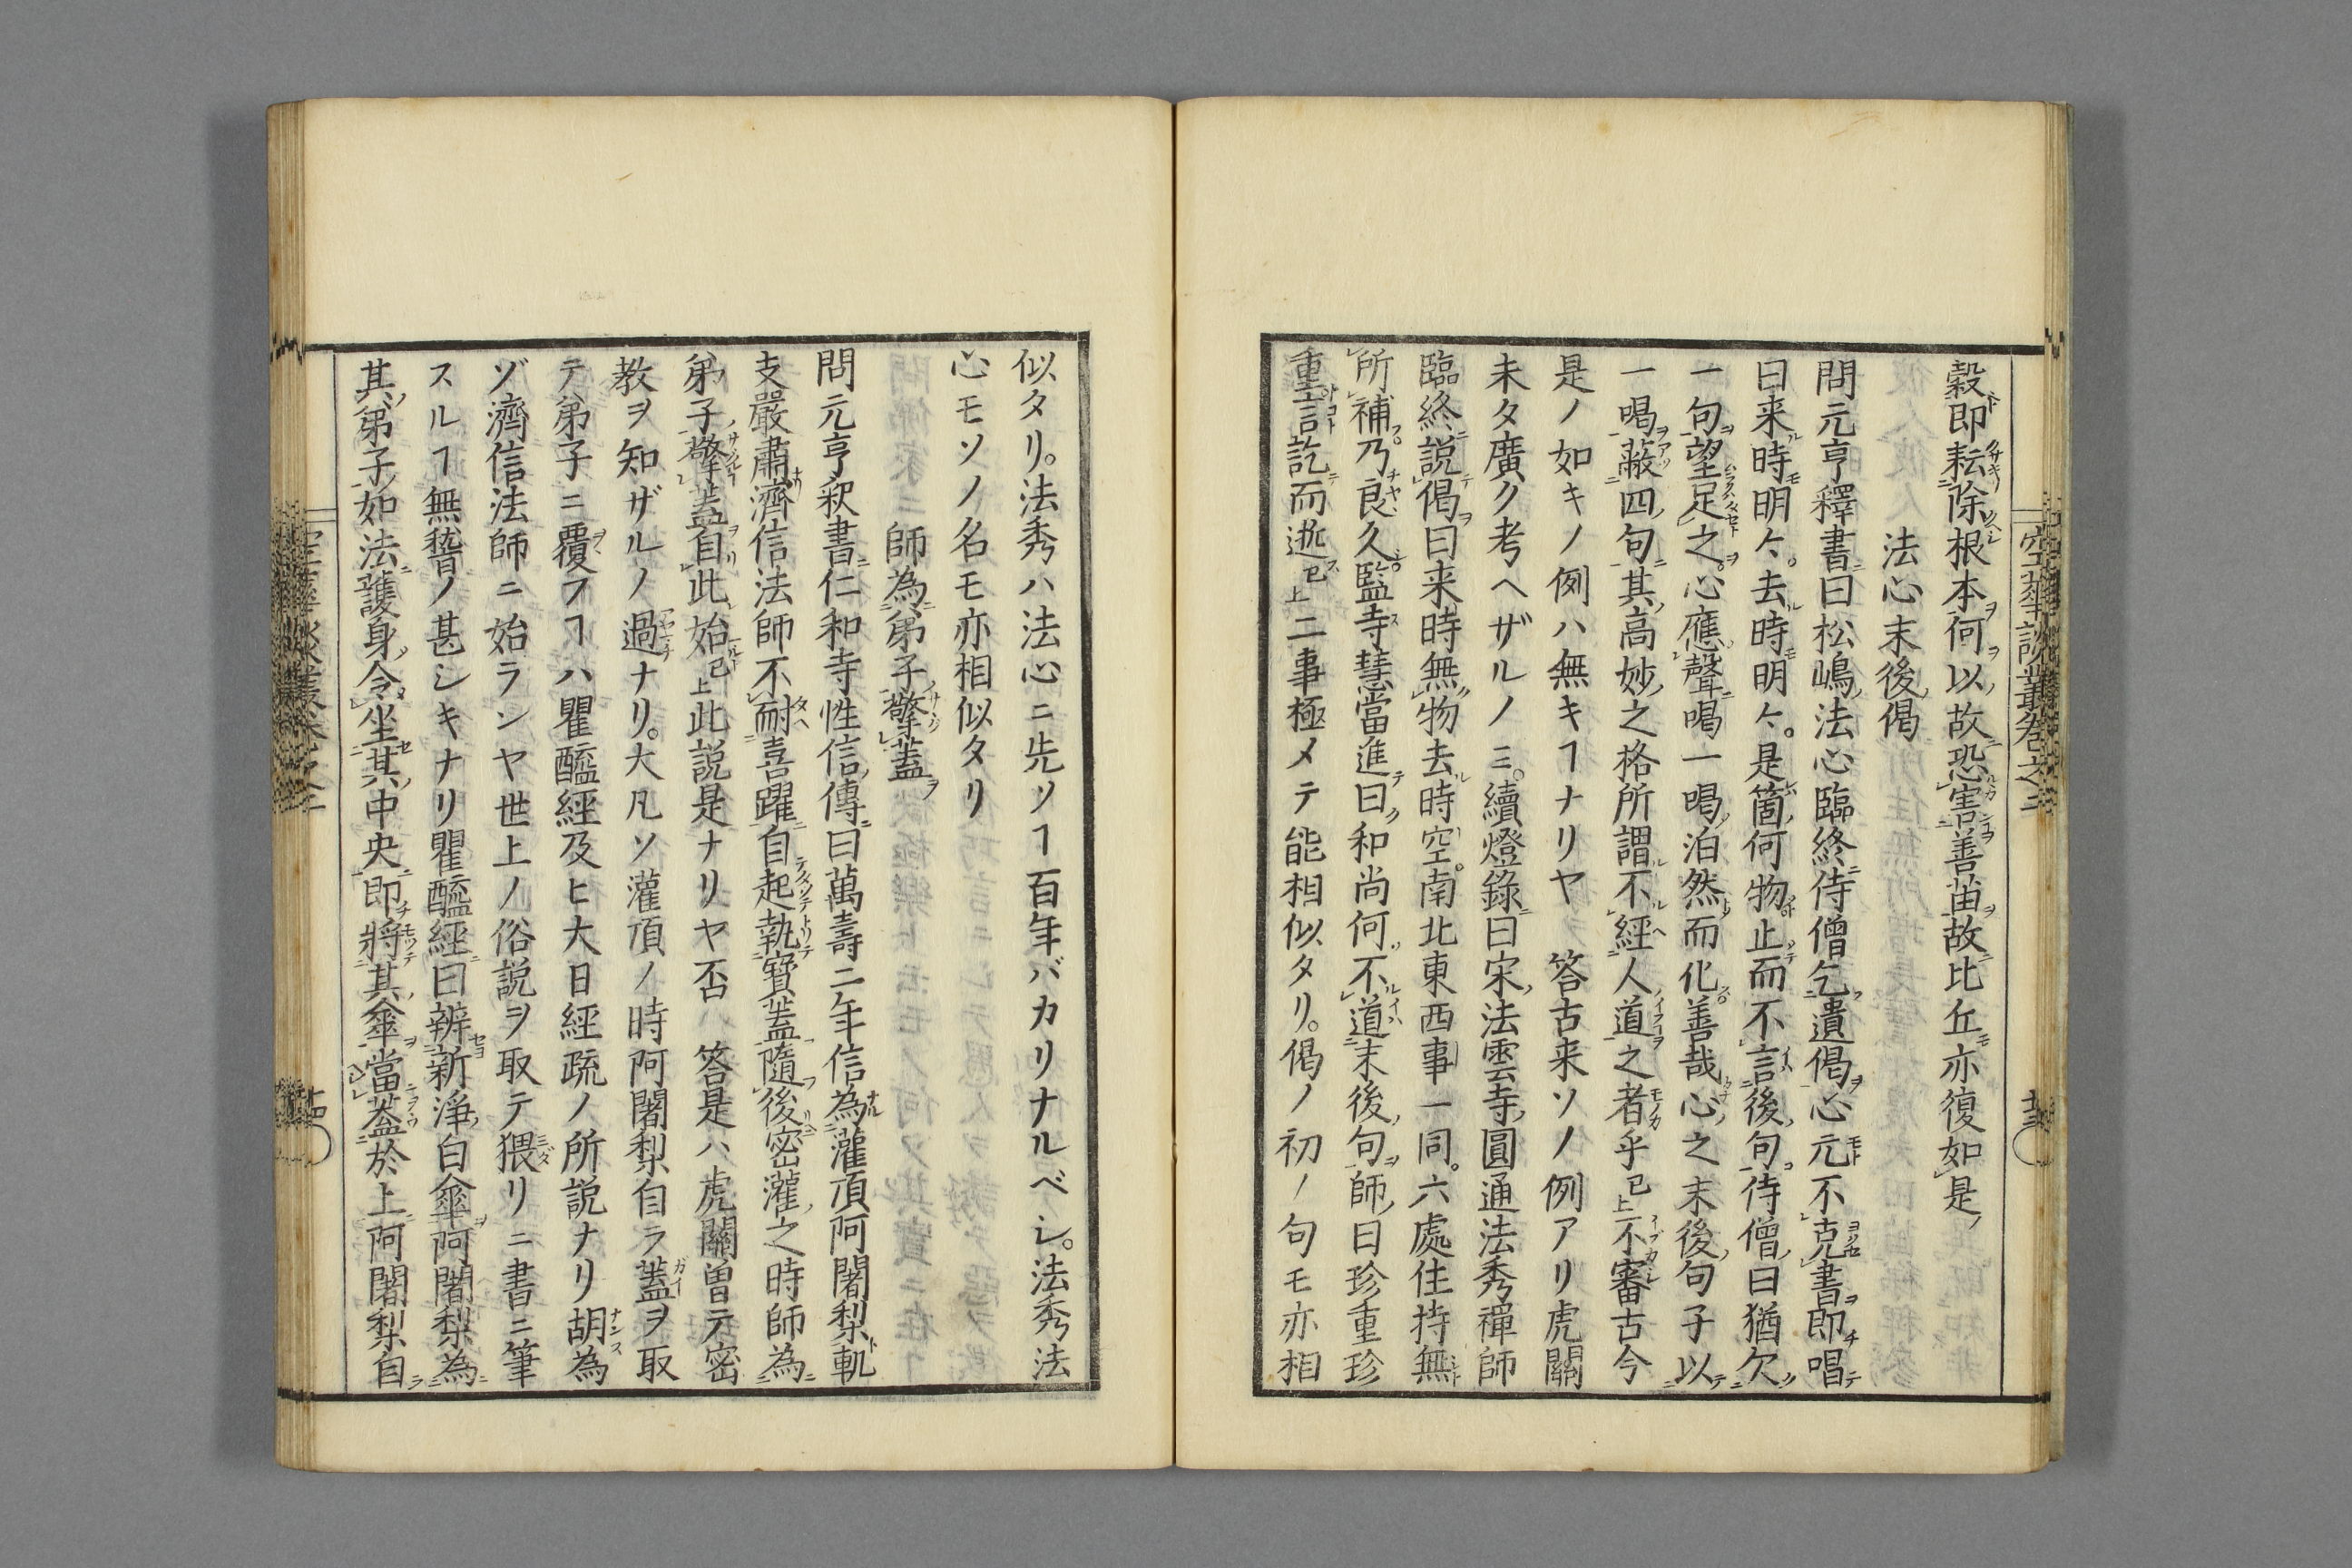 空華談叢卷之三
穀即耘除根本何以故恐害善苗故比丘亦復如是
法心末後偈
問元亨釋書曰松嶋法心臨終侍僧乞遺偈心元不克書即唱
曰来時明々。去時明々。是箇何物止而不言後句侍僧曰猶欠
一句望足之。心應聲喝一喝泊然而化善哉心之末後句子以
一喝蔽四句其高妙之格所謂不經人道之者乎已上不審古今
是ノ如キノ例ハ無キヿナリヤ 答古来ソノ例アリ虎關
未タ廣ク考ヘザルノミ。續燈錄曰宋法雲寺圓通法秀禪師
臨終説偈曰来時無物去時空。南北東西事一同。六處住持無
所補乃良久監寺慧當進曰和尚何不道末後句師曰珍重珍
重言訖而逝已上二事極メテ能相似タリ。偈ノ初ノ句モ亦相
似タリ。法秀ハ法心ニ先ソヿ百年バカリナルベシ。法秀法
心モソノ名モ亦相似タリ
師為弟子擎蓋
問元亨釈書仁和寺性信傳曰萬壽二年信為灌頂阿闍梨軌
支嚴肅濟信法師不耐喜躍自起執寶蓋隨後密灌之時師為
弟子擎蓋自此始已上此説是ナリヤ否ハ 答是ハ虎關曽テ密
教ヲ知ザルノ過ナリ。大凡ソ灌頂ノ時阿闍梨自ラ蓋ヲ取
テ弟子ニ覆フヿハ瞿醯經及ヒ大日經疏ノ所説ナリ胡為
ゾ濟信法師ニ始ランヤ世上ノ俗説ヲ取テ猥リニ書ニ筆
スルヿ無稽ノ甚シキナリ瞿醯經曰辨新淨白傘阿闍梨為
其弟子如法護身令坐其中央即將其傘當蓋於上阿闍梨自